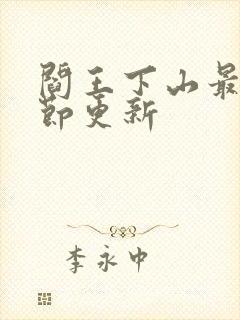 阎王下山最
节更新
李永中